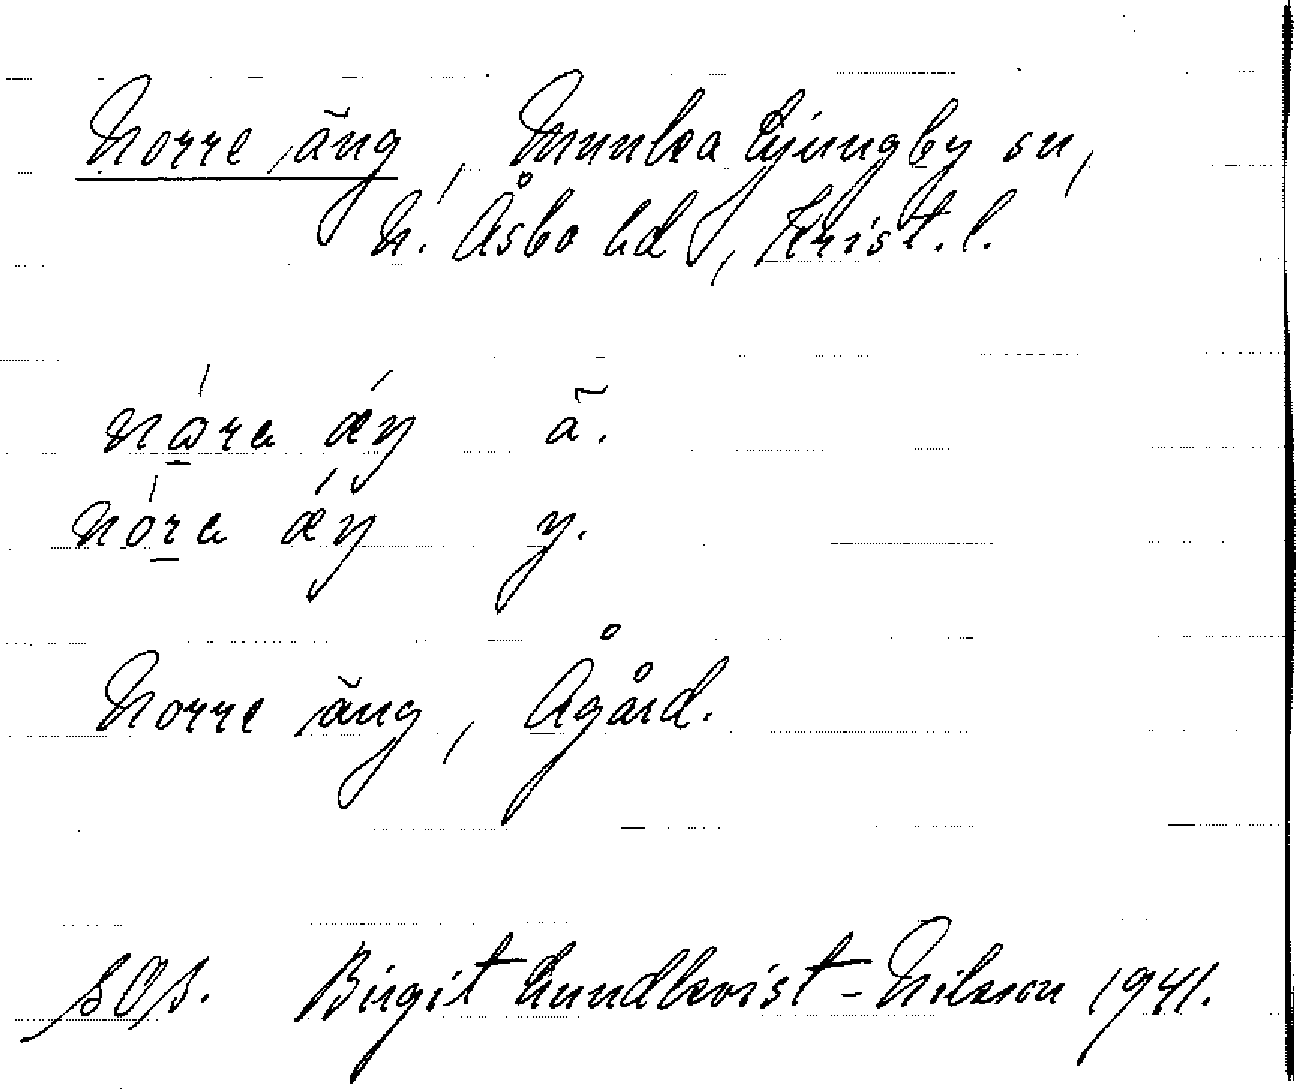 Norre äng, Munka Ljungby sn,
N. Åsbo hd, Krist. l.
nɷ́ra ǽŋ ä.
nóra ǽŋ y.
Norre äng, Ågård.
SOS. Birgit Lundkvist-Nilsson 1941.